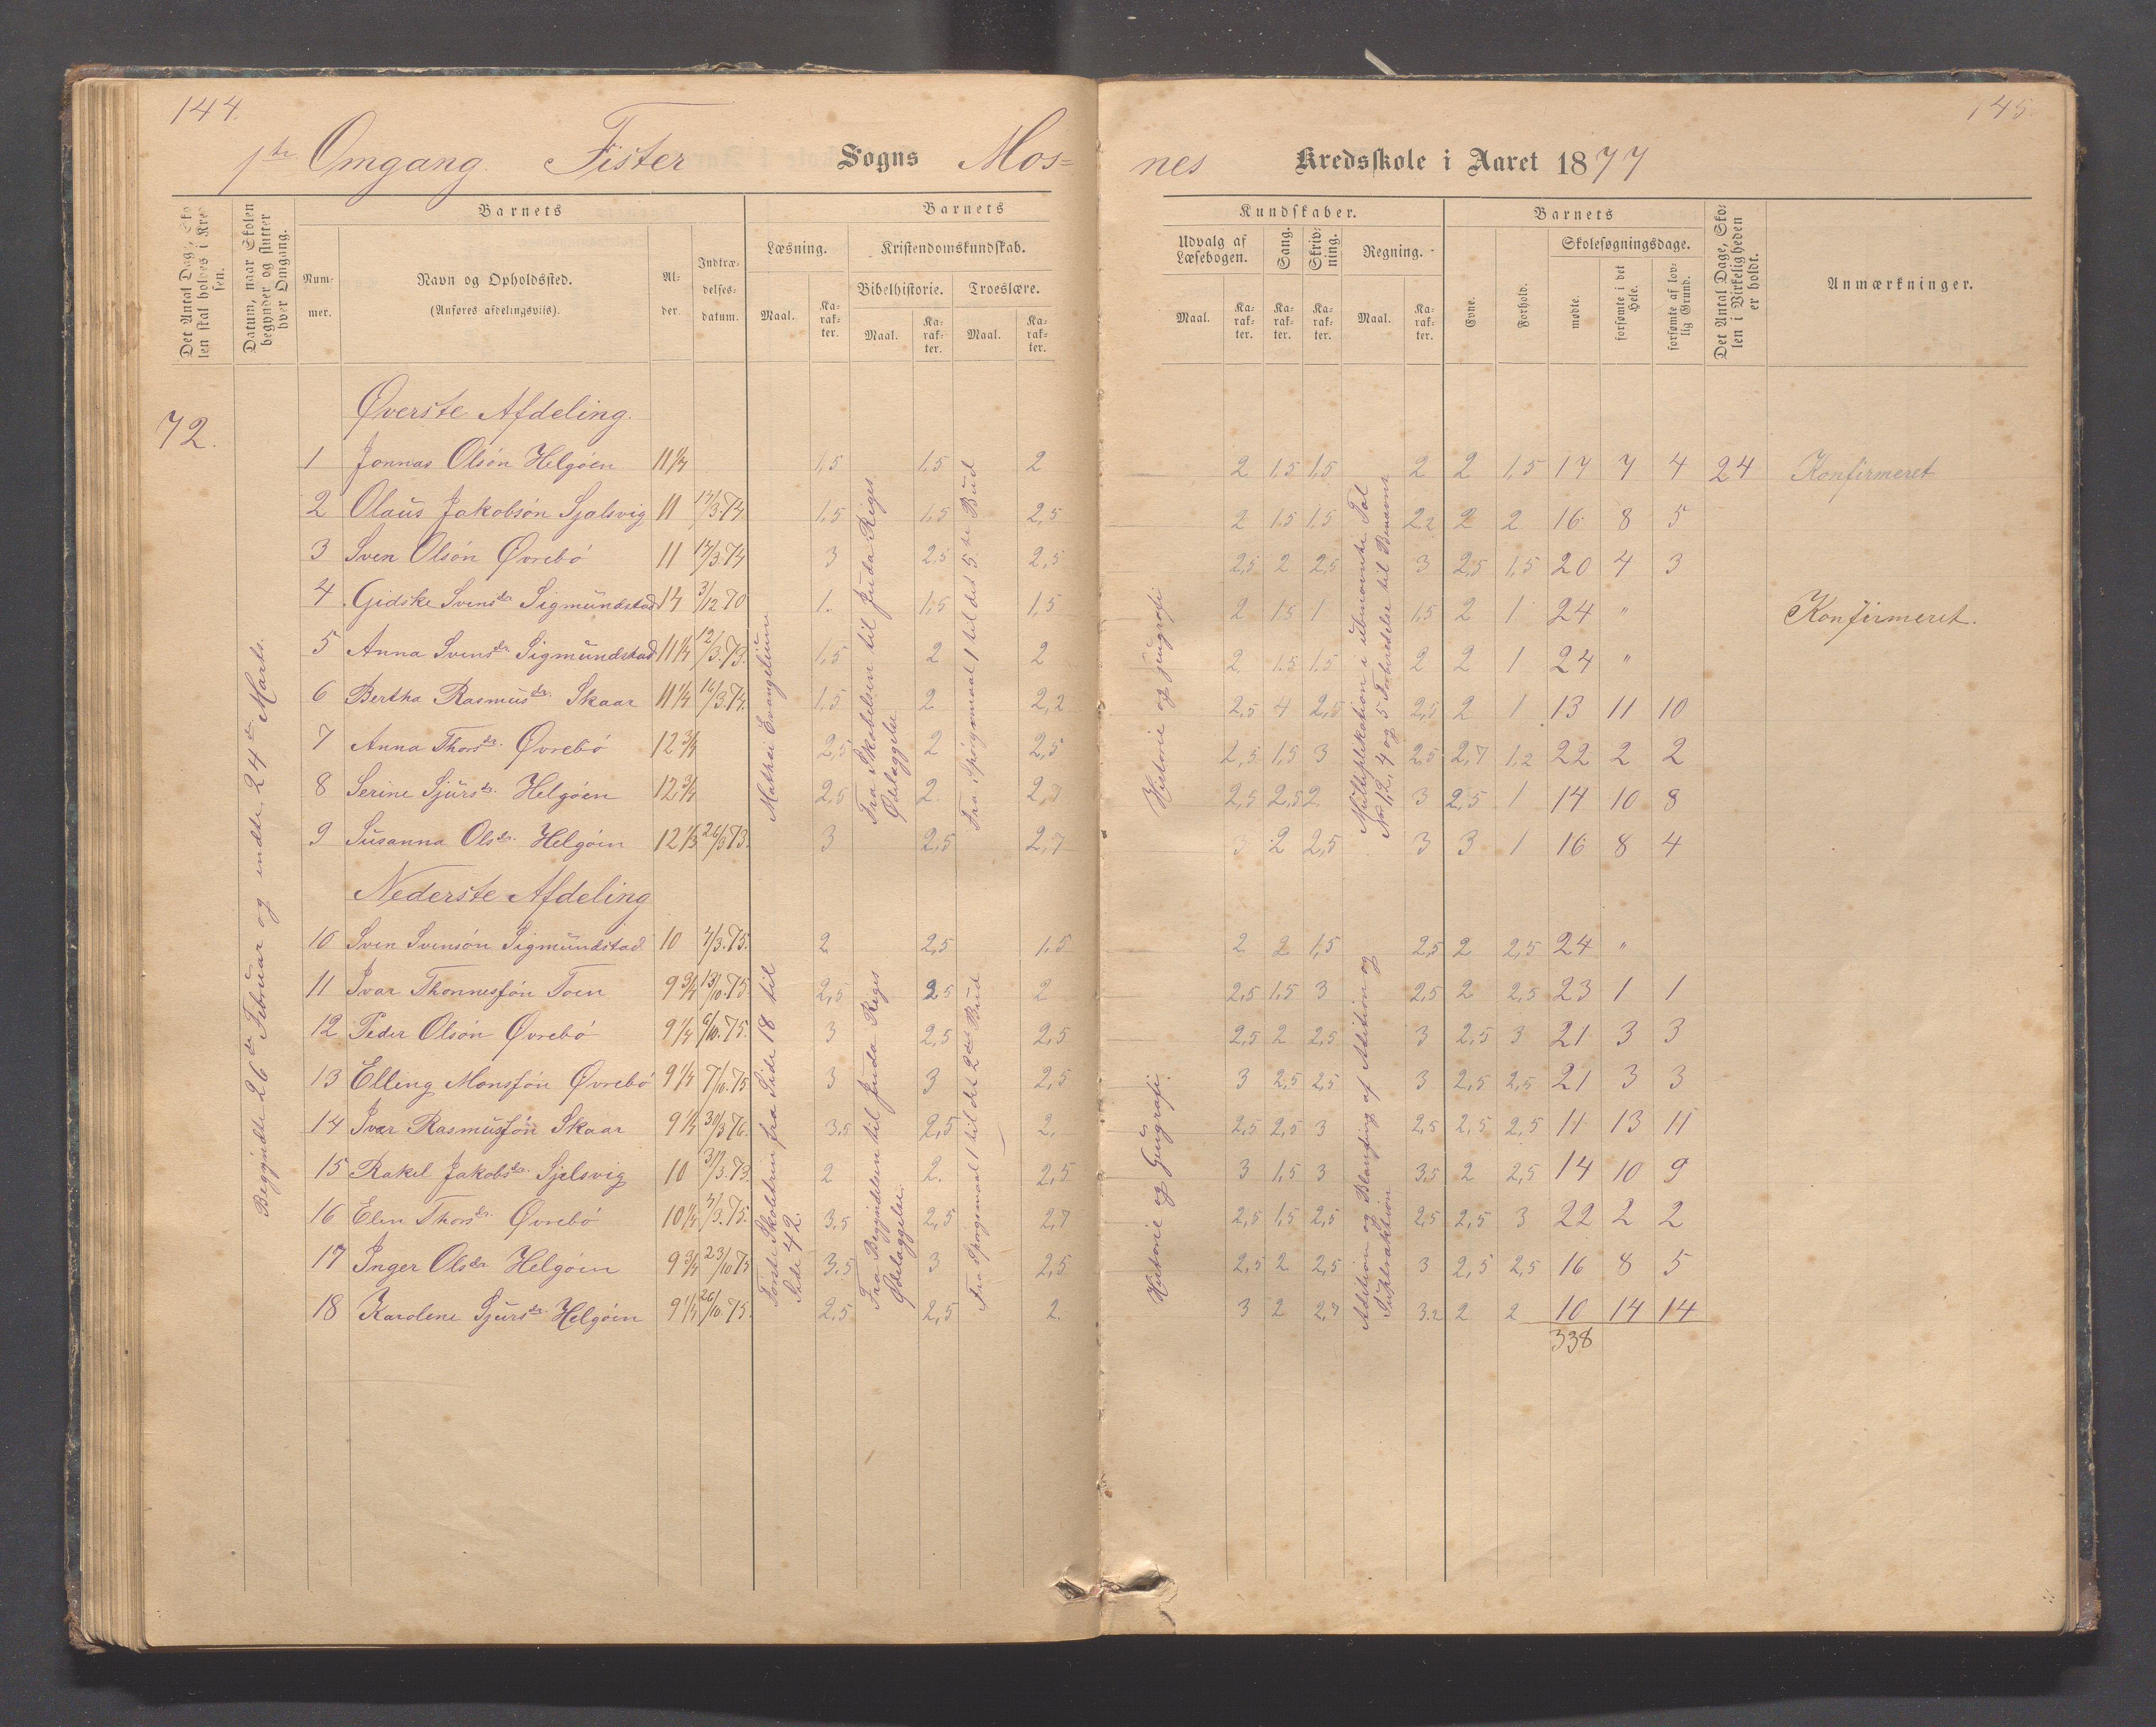 144.
145
1ste Omgang. Fister Sogns Mos=
nes Kredsskole i Aaret 1877
Det Antal Dage, Skolen skal holdes i Kredsen.
Datum, naar Skolen begynder og slutter hver Omgang.
Barnets
Nummer.
Navn og Opholdssted.
(Anføres afdelingsviis).
Alder.
Indtrædelsesdatum.
Barnets
Læsning.
Maal.
Karakter.
Kristendomskundskab.
Bibelhistorie.
Maal.
Karakter.
Troeslære.
Maal.
Karakter.
Kundskaber.
Udvalg af Læsebogen.
Maal.
Karakter.
Sang.
Karakter.
Skrivning.
Karakter.
Regning.
Maal.
Karakter.
Barnets
Evne.
Forhold.
Skolesøgningsdage.
mødte.
forsømte i det Hele.
forsømte af lovlig Grund.
Det Antal Dage, Skolen i Virkeligheden er holdt.
Anmærkninger.
72.
Begyndte 26de Februar og endte 24de Marts.
Øverste Afdeling.
Mathæi Evangelium
Fra Skabelsen til Juda Riges Ødelæggelse
Fra Spørgsmaal 1 til det 5te Bud
Historie og Geografi
Multiplikation i ubenævnte Tal
1 Jonnas Olsön Helgöen 11 1/4 1,5 1,5 2 2 1,5 1,5 2 2 1,5 17 7 4 24 Konfirmeret
2 Olaus Jakobsön Sjalsvig 11 17/3.74 1,5 1,5 2,5 2 1,5 1,5 2,2 2 2 16 8 5
3 Sven Olsön Øvrebö 11 17/3.74 3 2,5 2,5 2,5 2 2,5 3 2,5 1,5 20 4 3
4 Gidske Svensdr Sigmundstad 14 3/12 70 1. 1,5 1,5 2 1,5 1 1,5 2 1 24 " Konfirmeret.
5 Anna Svensdr Sigmundstad 11 1/4 12/3.73. 1,5 2 2 2 1,5 1,5 2 2 1 24 "
6 Bertha Rasmusdr. Skaar 11 1/4 16/3.74. 1,5 2 2,2 2,5 4 2,5 2,5 2 1 13 11 10
7 Anna Thorsdr. Øvrebö 12 3/4 2,5 2 2,5 2,5 1,5 3 2,5 2,7 1,2 22 2 2
8 Serine Sjursdr. Helgöen 12 3/4 2,5 2. 2,7 2,5 2,5 2 3 2,5 1 14 10 8
9 Susanna Olsdr. Helgöen 12 1/3 26/3 73. 3 2,5 2,7 2 2,5 3 3 1 16 8 4
Nederste Afdeling
Første Skoletrin fra Side 18 til Side 42.
Fra Begyndelsen til Juda Riges Ødelæggelse.
Fra Spørgsmaal 1 til det 2det Bud
Historie og Geografi.
Adition og Blanding af Adition og Subtraktion
10 Sven Svensön Sigmundstad 10 7/3.75. 2 2,5 1,5 2 2 1,5 2,5 2 2,5 24 "
11 Ivar Thonnesfön Toen 9 3/4 13/10.75 2,5 2,5 2 2,5 1,5 3 2,5 2 2,5 23 1 1
12 Peder Olsön Øvrebö 9 1/4 6/10.75. 3 2,5 2,5 2,5 2 2,5 3 2,5 3 21 3 3
13 Elling Monsfön Øvrebö 9 1/4 7/10.75 3 3 2,5 3 2,5 2,5 3 2,5 2,5 21 3 3
14 Ivar Rasmusfön Skaar 9 1/4 30/3 76. 3,5 2,5 2. 2,5 2,5 3 2,5 2,5 2,5 11 13 11
15 Rakel Jakobsdr. Sjelsvig 10 31/3.73. 2 2. 2,5 3 1,5 3 3,5 2 2,5 14 10 9
16 Elen Thorsdr. Øvrebö 10 1/4 4/3.75. 3,5 2,5 2,7 2,5 1,5 2,5 2,5 2,5 3 22 2 2
17 Inger Olsdr Helgöen 9 3/4 23/10 75 3,5 3 2,5 2,5 2 2,5 3 2,5 2,5 16 8 5
18 Karolene Sjursdr. Helgöen 9 1/4 26/10.75. 2,5 2,5 2. 3 2 2,7 3,2 2 2 10 14 14
338